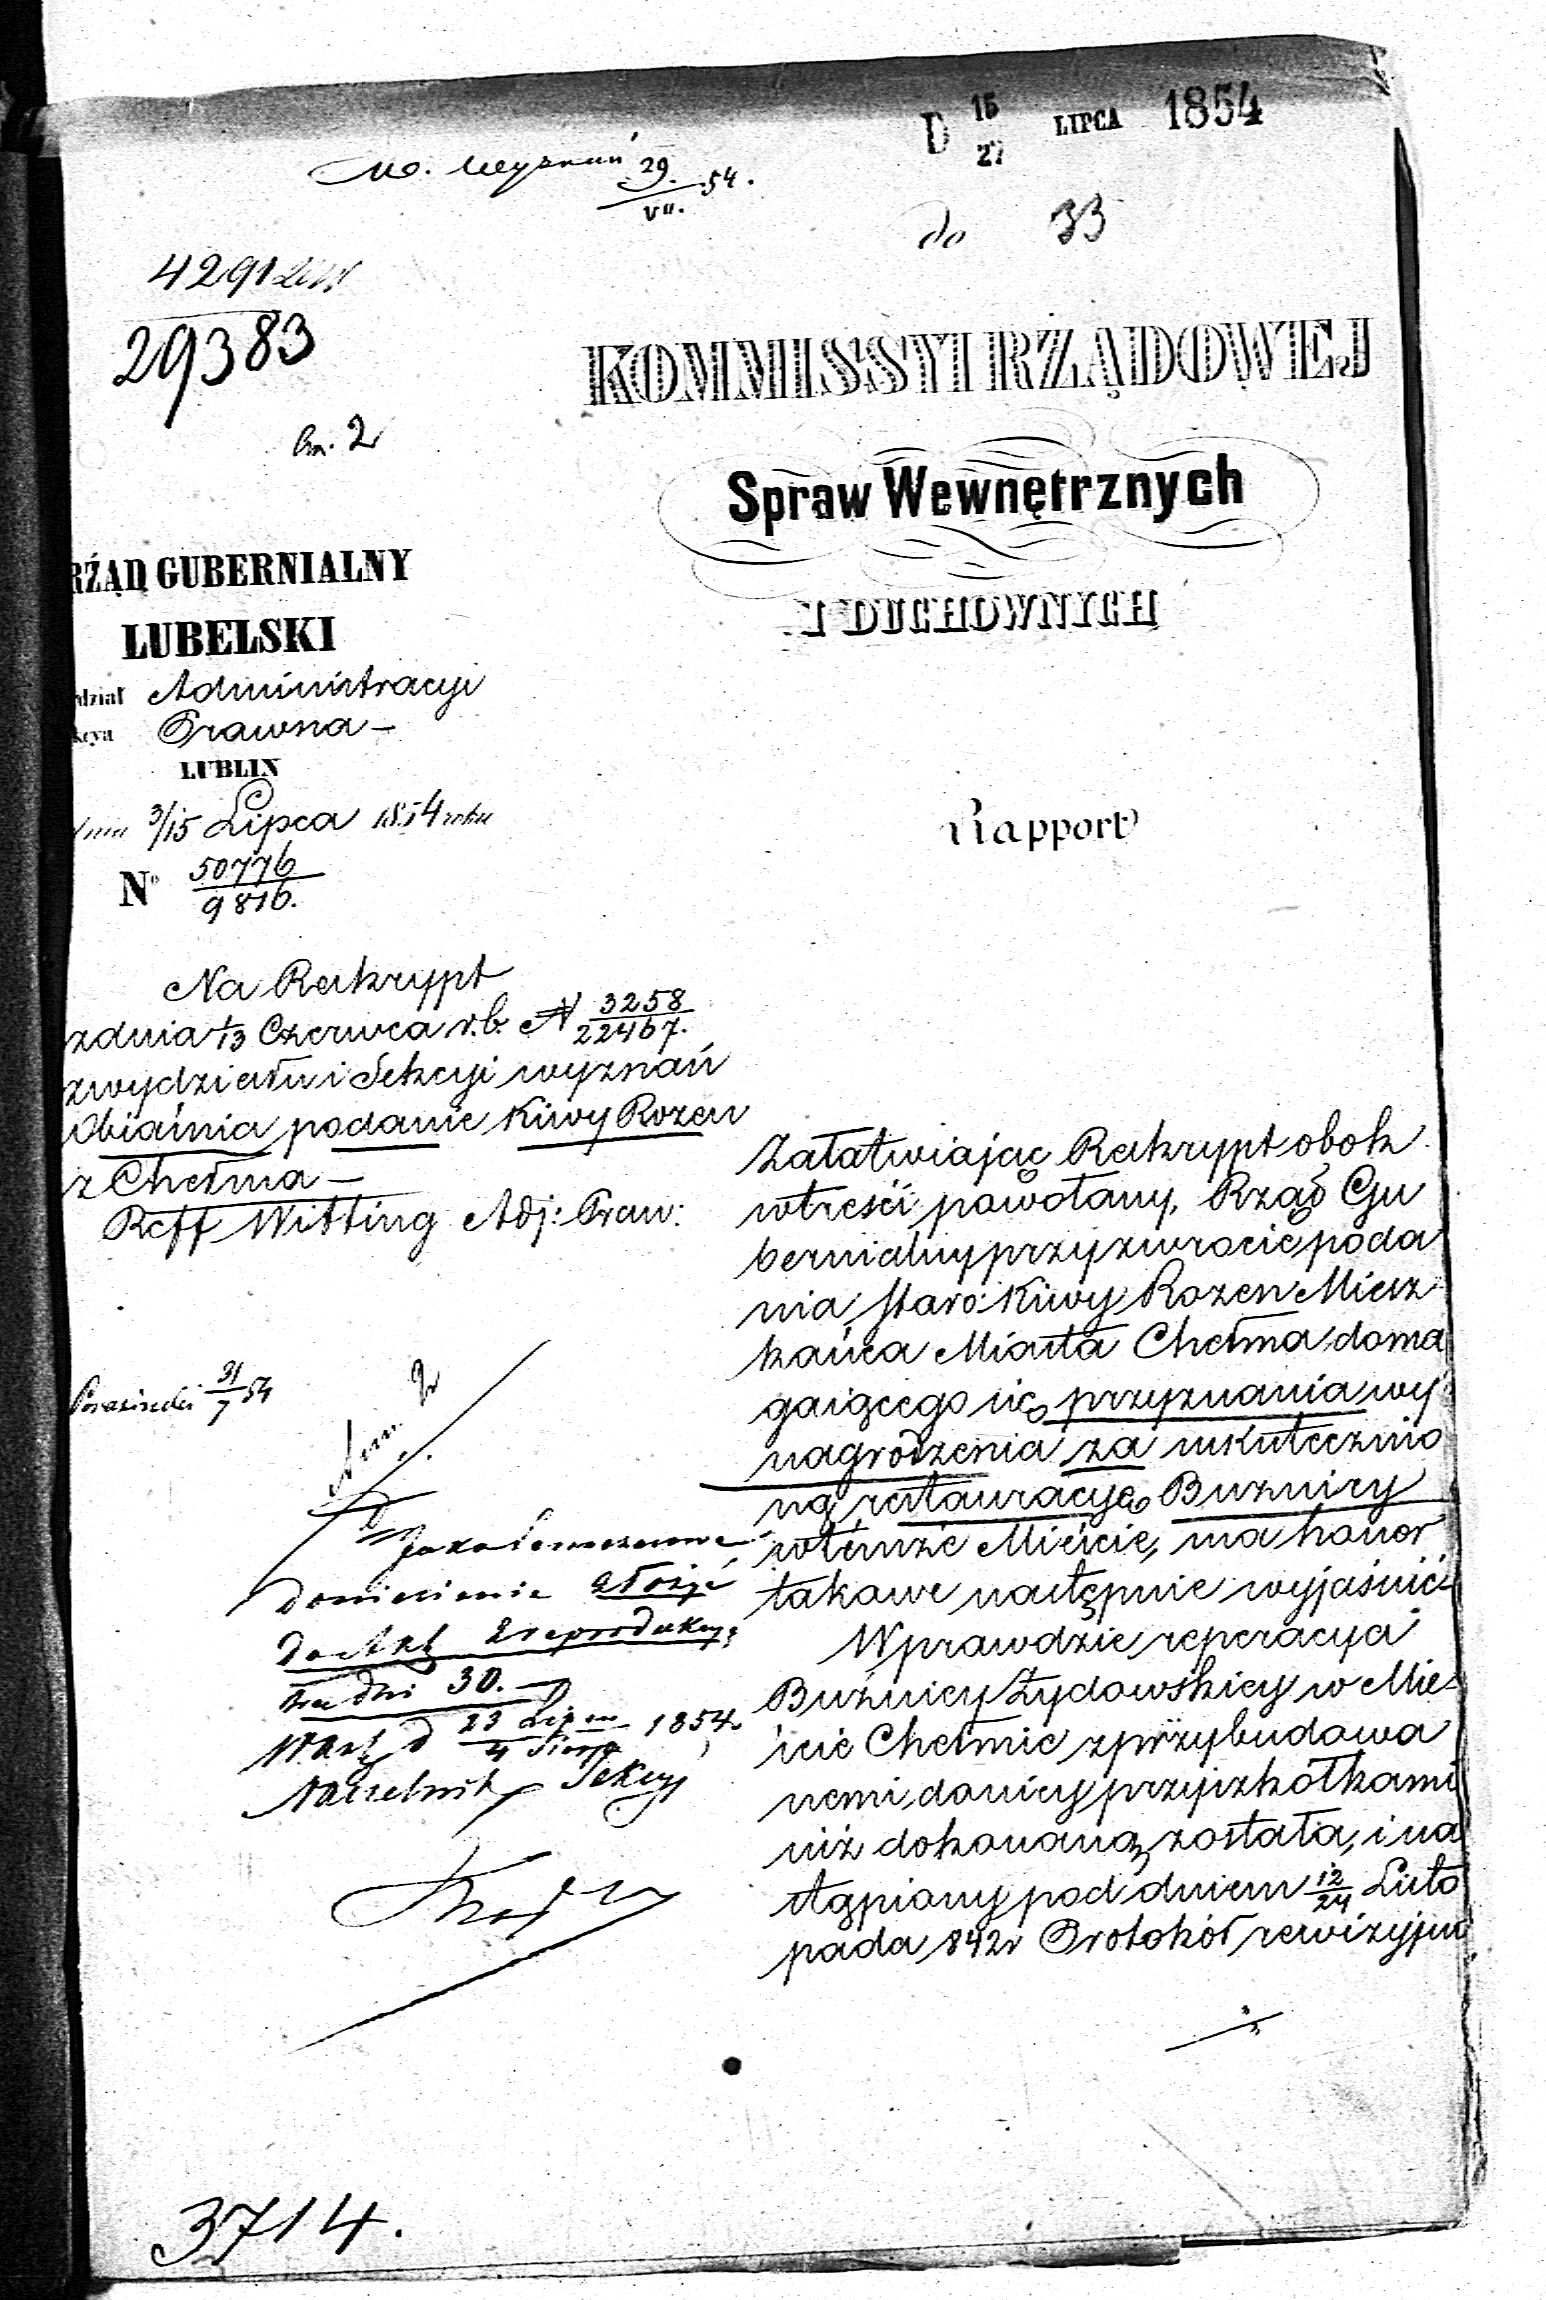 D 15/27 LIPCA 1854
29/VII. 54.
do 33
4291
29383
2
KOMMISSYI RZĄDOWEJ
Spraw Wewnętrznych
I DUCHOWNYCH
RZĄD GUBERNIALNY
LUBELSKI
dział Administracyi
kcya Prawna –
LUBLIN
dnia 3/15 Lipca 1854 roku
Nº 50776/9816.
Rapport
Na Reskrypt
z dnia 1/13 Czerwca r.b. N 3258/22467.
z wydziału i Sekcyi wyznań
Obiaśnia podanie Kiwy Rozen
z Chełma –
Reff Witting Adj: Praw:
31/7 54
Załatwiając Reskrypt obok
w treści powołany, Rząd Gu
bernialny przy zwrocie poda
nia Staro: Kiwy Rozen Miesz
kańca Miasta Chełma doma
gaiącego się przyznania wy
nagrodzenia za uskutecznio
ną restauracyę Bużnicy
w temże Mieście, ma honor
takowe następnie wyjaśnić:
Wprawdzie reperacya
Bużnicy Żydowskiey w Mie
ście Chełmie z przybudowa
nemi do niey przyiszkółkami
już dokonaną została, i na
stąpiony pod dniem 12/24 Listo
pada 842r Protokół rewizyjny
doniesienie złożyć
do Akt z reprodukcyą
za dni 30. –
Warsz d 23 Lipca/4 Sierp 1854
Naczelnik Sekcyi
3714.